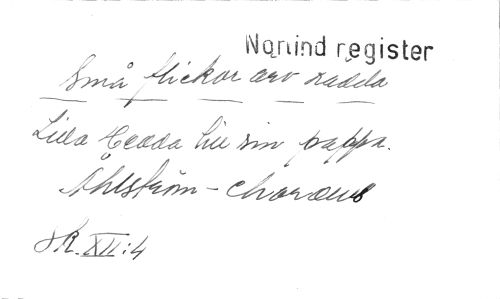 Nanind register
Små flickor äro rädda
Lilla Hedda till sin pappa.
Åhlström - Charaus
SK. XII:4